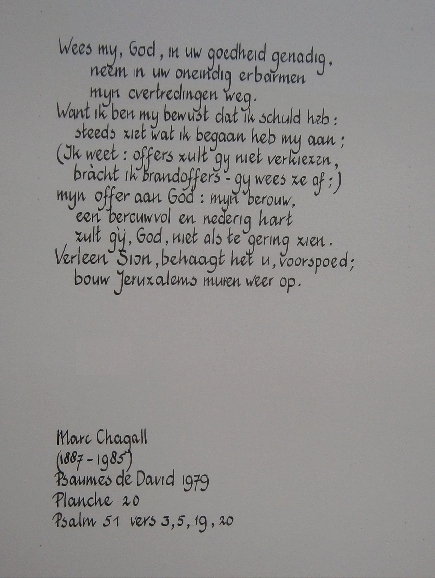 Wees my, God, in uw goedheid genadig,
neem in uw oneindig erbarmen
myn overtredingen weg.
Want ik ben my bewust dat ik schuld heb:
steeds ziet wat ik begaan heb my aan;
(Ik weet: offers zult gy niet verkiezen,
bràcht ik brandoffers - gy wees ze af;)
myn offer aan God: myn berouw,
een berouwvol en nederig hart
zult gÿ, God, niet als te gering zien.
Verleen Sion, behaagt het u, voorspoed;
bouw Jeruzalems muren weer op.
Marc Chagall
(1887-1985)
Psaumes de David 1979
Planche 20
Psalm 51 vers 3,5,19,20